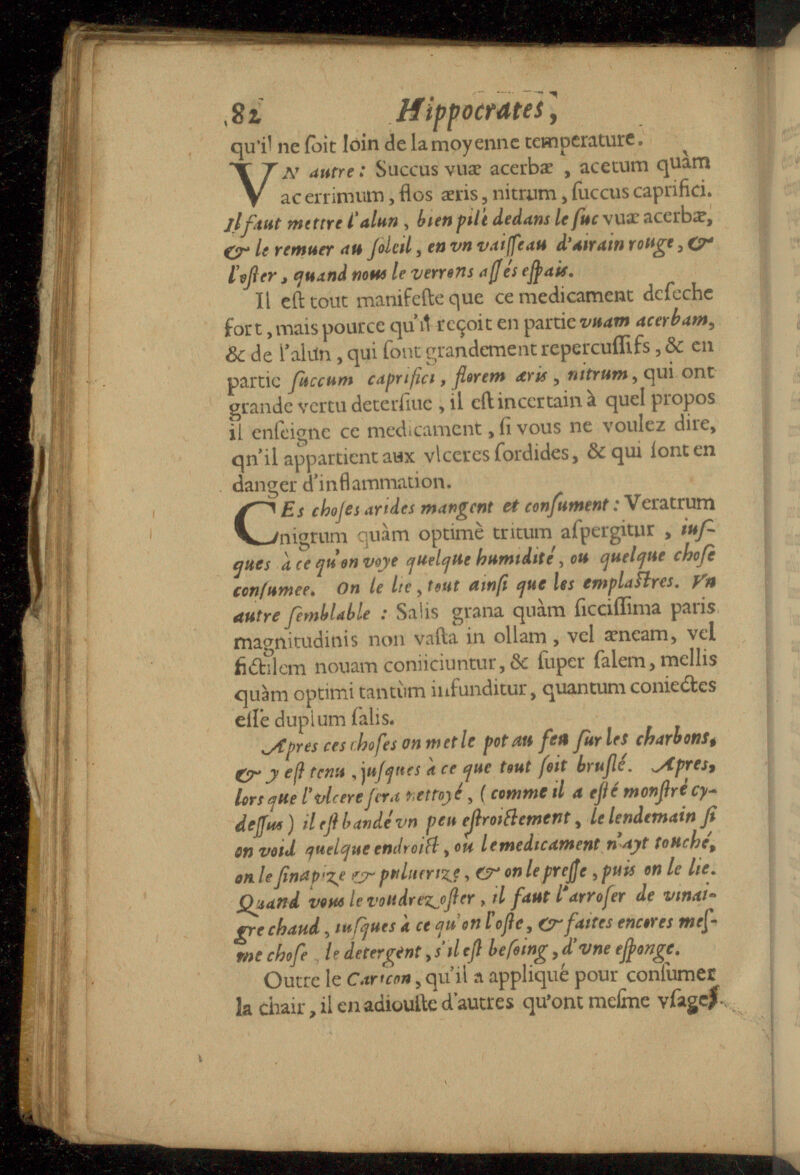 82 Hippocrates,
qu'il ne ſoit loin de la moyenne temperature.
VN autre : Succus vuæ acerbæ , acetum quàm
acerrimum, flos æris, nitrum, ſuccus caprifici.
Il faut mettre l'alun , bien pilé dedans le ſuc vuæ acerbæ,
& le remuer au ſoleil, en vn vaiſſeau d'airain rouge, &
l'oſter, quand nous le verrons aſſés eſpais.
Il eſt tout manifeſte que ce medicament deſeche
fort, mais pource qu'il reçoit en partie vuam acerbam,
& de l'alun, qui ſont grandement repercuſſifs, & en
partie ſuccum caprifici, florem æris, nitrum, qui ont
grande vertu deterſiue , il eſt incertain à quel propos
il enſeigne ce medicament, ſi vous ne voulez dire,
qn'il appartient aux vlceres ſordides, & qui ſont en
danger d'inflammation.
CEs choſes arides mangent et conſument : Veratrum
nigrum quàm optimè tritum aſpergitur , iuſ-
ques à ce qu'on voye quelque humidité, ou quelque choſe
conſumee. On le lie, tout ainſi que les emplaſtres. Vn
autre ſemblable : Salis grana quàm ſicciſſima paris
magnitudinis non vaſta in ollam, vel æneam, vel
fictilem nouam coniiciuntur, & ſuper ſalem, mellis
quàm optimi tantùm infunditur, quantum coniectes
eſſe duplum ſalis.
Apres ces choſes on met le pot au feu ſur les charbons,
& y eſt tenu , juſques à ce que tout ſoit bruſlé. Apres,
lors que l'vlcere ſera nettoyé, ( comme il a eſté monſtré cy-
deſſus ) il eſt bandé vn peu eſtroictement, le lendemain ſi
on void quelque endroict, ou le medicament n'ayt touché,
on le ſinapize & puluerize, & on le preſſe, puis on le lie.
Quand vous le voudrez oſter, il faut l'arroſer de vinai-
gre chaud, iuſques à ce qu'on l'oſte, & faites encores meſ-
me choſe , le detergent, s'il eſt beſoing, d'vne eſponge.
Outre le Caricon, qu'il a appliqué pour conſumer
la chair, il en adiouſte d'autres qu'ont meſme vſage.